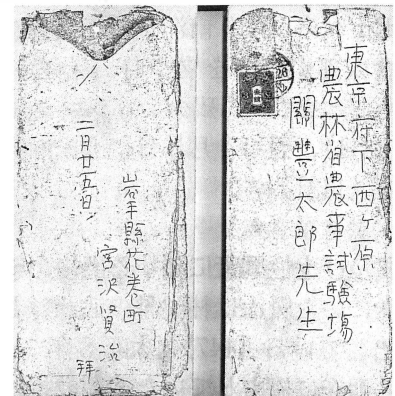 東京府下西ヶ原
農林省農事試験場
關豊太郎先生
二月廿五日
岩手縣花巻町
宮沢賢治
拝